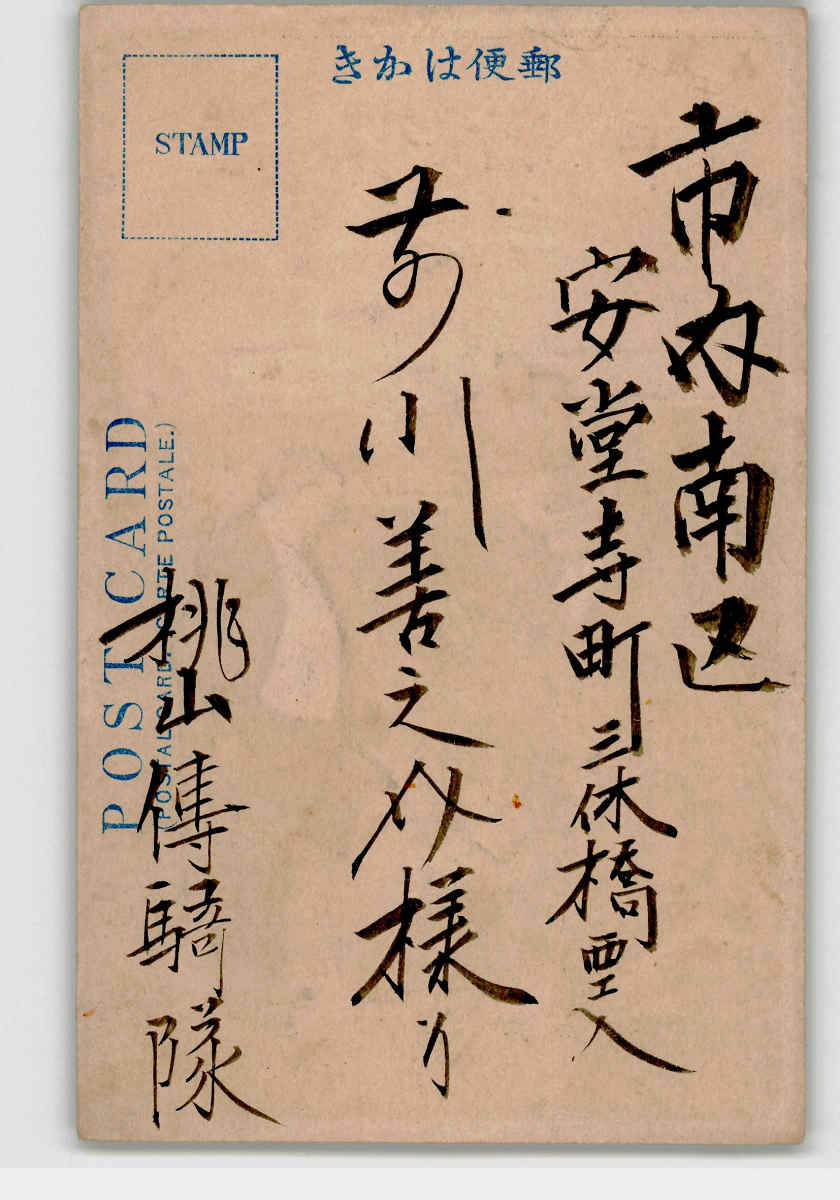 きかは便郵
STAMP
市内南区
安堂寺町三休橋西エ入
前川善之介様行
桃山傳騎隊
POST CARD
(POSTAL CARD. CARTE POSTALE.)